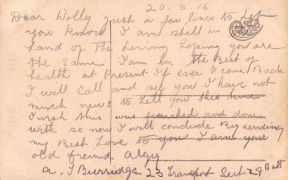 20.6.16
Dear Dolly Just a few lines to Let
you know I am still in
Land of the Living hoping you are
the same I am In the Best of
health at Present If ever I come Back
I will Call and see you I have not
much news to tell you this time
I wish this was finished and done
with so now I will conclude By sending
my Best Love to you I am your
old friend Algy
A. J Burridge 23 Transport Sect 29 Batt